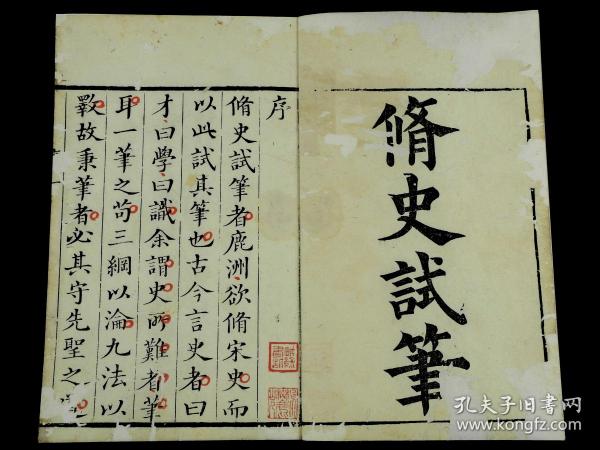 脩史試筆
序
脩史試筆者鹿洲欲脩宋史而
以此試其筆也古今言史者曰
才曰學曰識余謂史所難者筆
耳一筆之苟三綱以淪九法以
斁故秉筆者必其守先聖之
孔夫子旧书网
www.kongfz.com